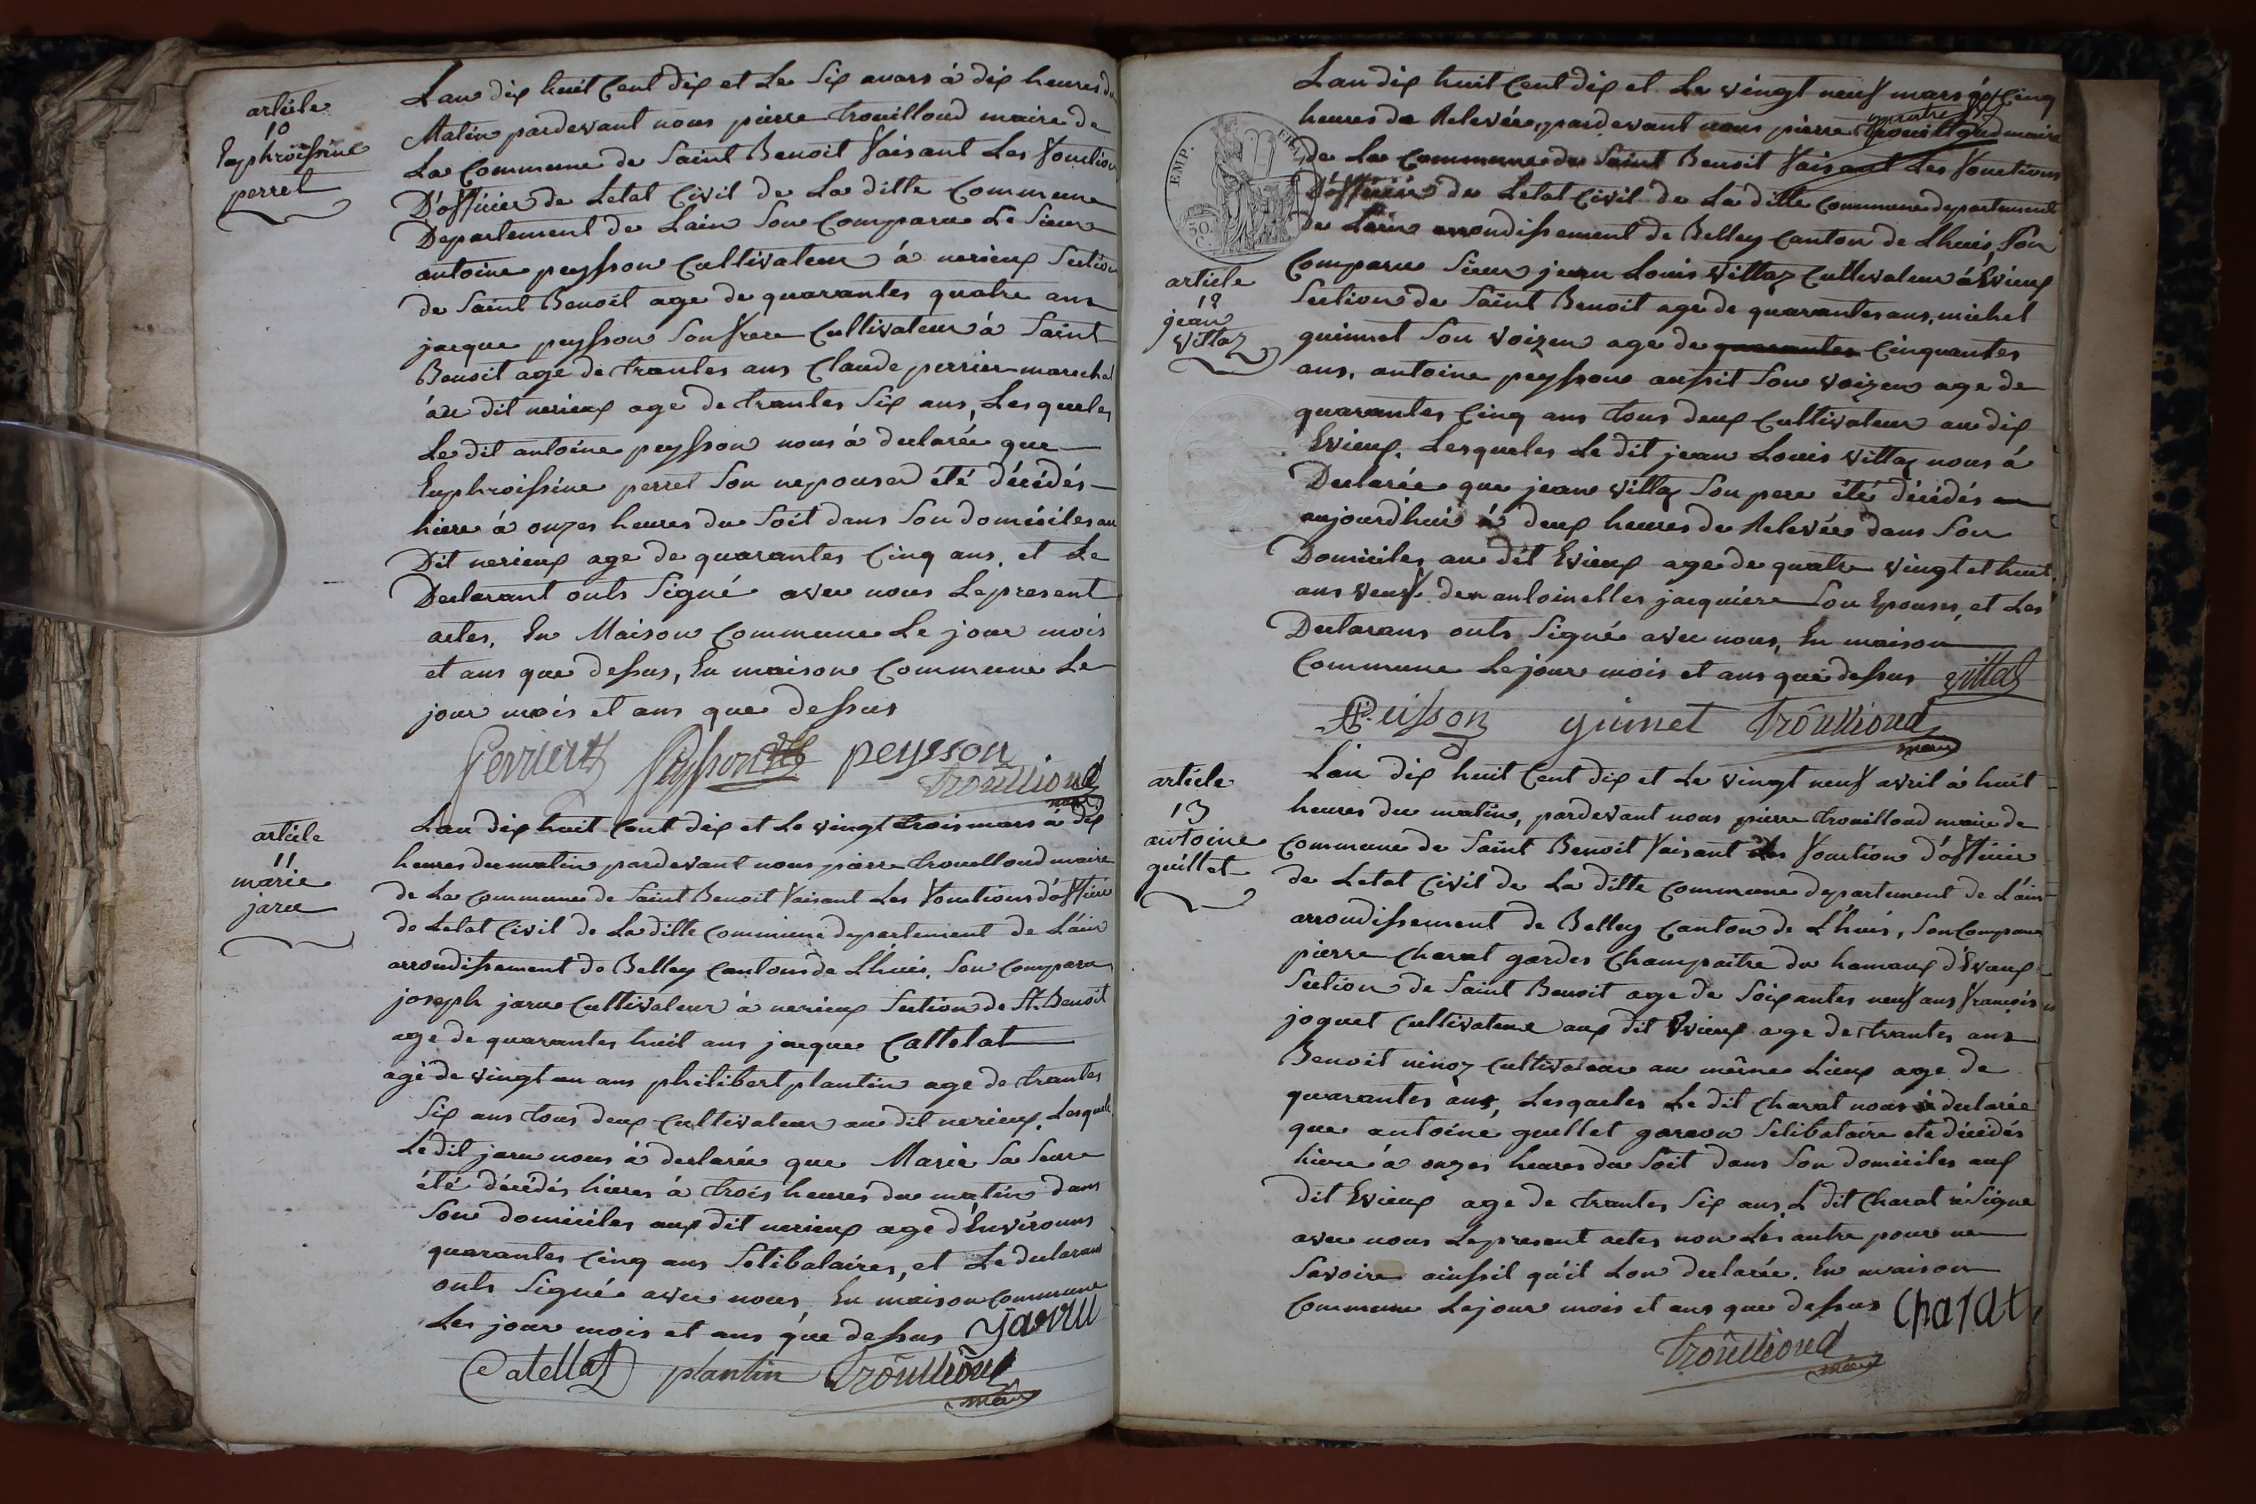 article
10
Euphroissine
perret
Lan dix huit Cent dix et Le Six mars à dix heures du
Matin pardevant nous pierre trouilloud maire de
La Commune de Saint Benoit faisant Les fonction
D'officier de Letat Civil de La ditte Commune
Departement de Lain Son Comparu Le Sieur
antoine peysson Cultivateur à nerieux Section
de Saint Benoit age de quarantes quatre ans
jacque peysson Son frere Cultivateur à Saint
Benoit age de trantes ans Claude perrier marechal
au dit nerieux age de trantes Six ans, Lesqueles
Le dit antoine peysson nous à declarée que
Euphroissine perret Son nepouse à été décédés
hiere à onzes heures du Soit dans Son domiciles au
Dit nerieux age de quarantes Cinq ans, et Le
Declarant onts Signé avec nous Le present
actes, En Maison Commune Le jour mois
et ans que dessus, En maison Commune Le
jour mois et ans que dessus
Perrier peysson peysson
trouilloud
maire
article
11
marie
jaru
Lan dix huit Cent dix et Le vingt trois mars à dix
heures du matin pardevant nous pierre trouilloud maire
de La Commune de Saint Benoit faisant Les fonctions d'officie
de Letat Civil de La ditte Commune departement de Lain
arrondissement de Belley Cantons de Lhuis, Son Comparu
joseph jaru Cultivateur à nerieux Section de St. Benoit
age de quarantes huit ans jacque Cattelat
age de vingt un ans philibert plantin age de trantes
Six ans tous deux Cultivateur au dit nerieux, Lesquele
Le dit jaru nous à declarée que Marie Sa Seure
été décédés hieres à trois heures du matin dans
Son domiciles aux dit nerieux age d'Environs
quarantes Cinq ans Selibataires, et Le declarans
onts Signé avec nous En maison Commune
Les jour mois et ans que dessus jarru
Catellat plantin trouilloud
maire
EMP.
50
C.
article
12
jean
villaz
Lan dix huit Cent dix et Le vingt neuf mars à Cinq
heures de Relevée, pardevant nous pierre trouilloud maire
de La Commune de Saint Benoit faisant Les fonctions
D'officier de Letat Civil de La ditte Commune departement
de Lain arrondissement de Belley Canton de Lhuis, Son
Comparu Sieur jean Louis Villaz Cultivateur à Evieux
Section de Saint Benoit age de quarantes ans, michel
guinnet Son voizen age de quarantes Cinquantes
ans, antoine peysson aussit Son voizen age de
quarantes Cinq ans tous deux Cultivateur au dix
Evieux, Lesqueles Le dit jean Louis Villaz nous à
Declarée que jean villaz Son pere été décédés
aujourdhui à deux heures de Relevée dans Son
Domiciles au dit Evieux age de quatre vingt et huit
ans veuf de antoinettes jacquiere Son Epouses, et Les
Declarans onts Signé avec nous, En maison
Commune Le jour mois et ans que dessus villaz
Peisson guinet trouilloud
maire
article
13
antoine
guillet
Lan dix huit Cent dix et Le vingt neuf avril à huit
heures du matin, pardevant nous pierre trouilloud maire de
Commune de Saint Benoit faisant Les fonction d'officier
de Letat Civil de La ditte Commune departement de L'ain
arrondissement de Belley Canton de Lhuis, Son Comparu
pierre Charat gardes Champaitre du hamaux d'Evaux
Section de Saint Benoit age de Soixantes neuf ans francois
joguet Cultivateur aux dit Evieux age de trantes ans
Benoit ninoz Cultivateur au même Lieux age de
quarantes ans, Lesqueles Le dit Charat nous à declarée
que antoine guellet garcon Selibataire été décédés
hiere à onzes heures du Soit dans Son domiciles aux
dit Evieux age de trantes Six ans, L dit Charat à Signe
avec nous Le present actes non Les autre pour ne
Savoire ainssit qu'it Lon declarée. En maison
Commune Le jour mois et ans que dessus Charat
trouilloud
maire